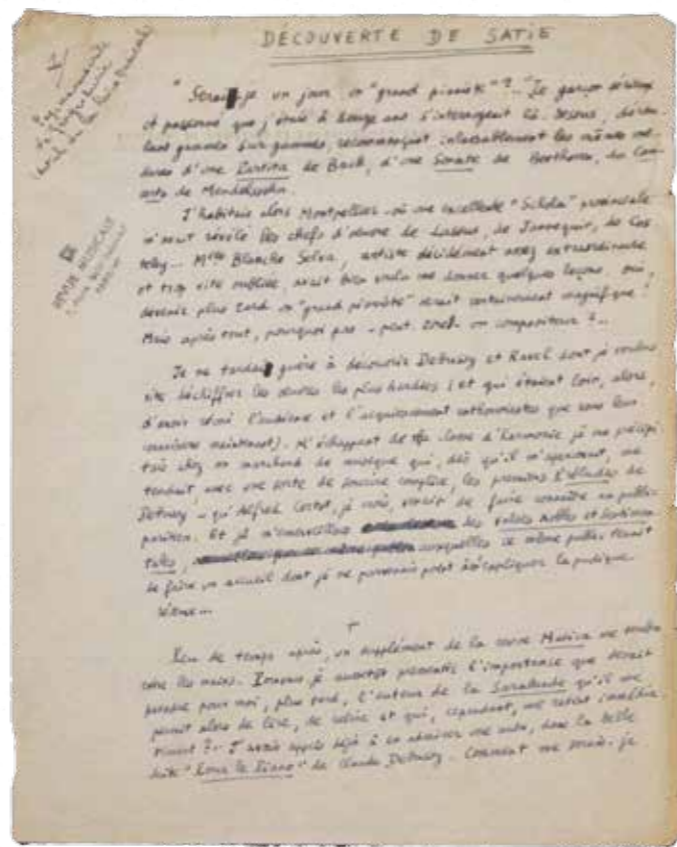 DÉCOUVERTE DE SATIE
"Serai-je un jour un "grand pianiste"?.. Le garçon sérieux
et passionné que j'étais à douze ans s'interrogeait là-dessus, dérou-
lant gammes sur gammes, recommençant inlassablement les mêmes me-
sures d'une Partita de Bach, d'une Sonate de Beethoven, du Con-
certo de Mendelssohn.
J'habitais alors Montpellier où une excellente "Schola" provinciale
m'avait révélé les chefs d'œuvre de Lassus, de Jannequin, de Cos-
teley... Mlle Blanche Selva, artiste décidément assez extraordinaire
et trop vite oubliée, avait bien voulu me donner quelques leçons, oui,
devenir plus tard un "grand pianiste" serait certainement magnifique!
Mais après tout, pourquoi pas - peut-être - un compositeur?...
Je ne tardai guère à découvrir Debussy et Ravel dont je voulus
vite déchiffrer les œuvres les plus hardies (et qui étaient loin, alors,
d'avoir réuni l'audience et l'acquiescement enthousiastes que nous leur
connaissons maintenant). M'échappant de la classe d'harmonie je me précipi-
tais chez un marchand de musique qui, dès qu'il m'apercevait, me
tendait, avec une sorte de sourire complice, les premières Études de
Debussy - qu'Alfred Cortot, je crois, venait de faire connaître au public
parisien. Et je m'émerveillais des Valses nobles et sentimen-
tales, auxquelles ce même public venait
de faire un accueil dont je ne parvenais point à m'expliquer la pudique
réserve...
+
Peu de temps après, un supplément de la revue Musica me tomba
entre les mains. Pouvais-je aussitôt pressentir l'importance que devait
prendre pour moi, plus tard, l'auteur de la Sarabande qu'il me
permit alors de lire, de relire et qui, cependant, me retint
J'avais appris déjà à en admirer une autre, dans la belle
suite "Pour le Piano" de Claude Debussy. Comment me serais-je
REVUE MUSICALE